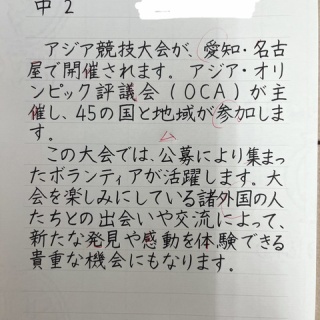 中2
アジア競技大会が、愛知・名古
屋で開催されます。アジア・オリ
ンピック評議会(OCA)が主
催し、45の国と地域が参加しま
す。
この大会では、公募により集まっ
たボランティアが活躍します。大
会を楽しみにしている諸外国の人
たちとの出会いや交流によって、
新たな発見や感動を体験できる
貴重な機会にもなります。